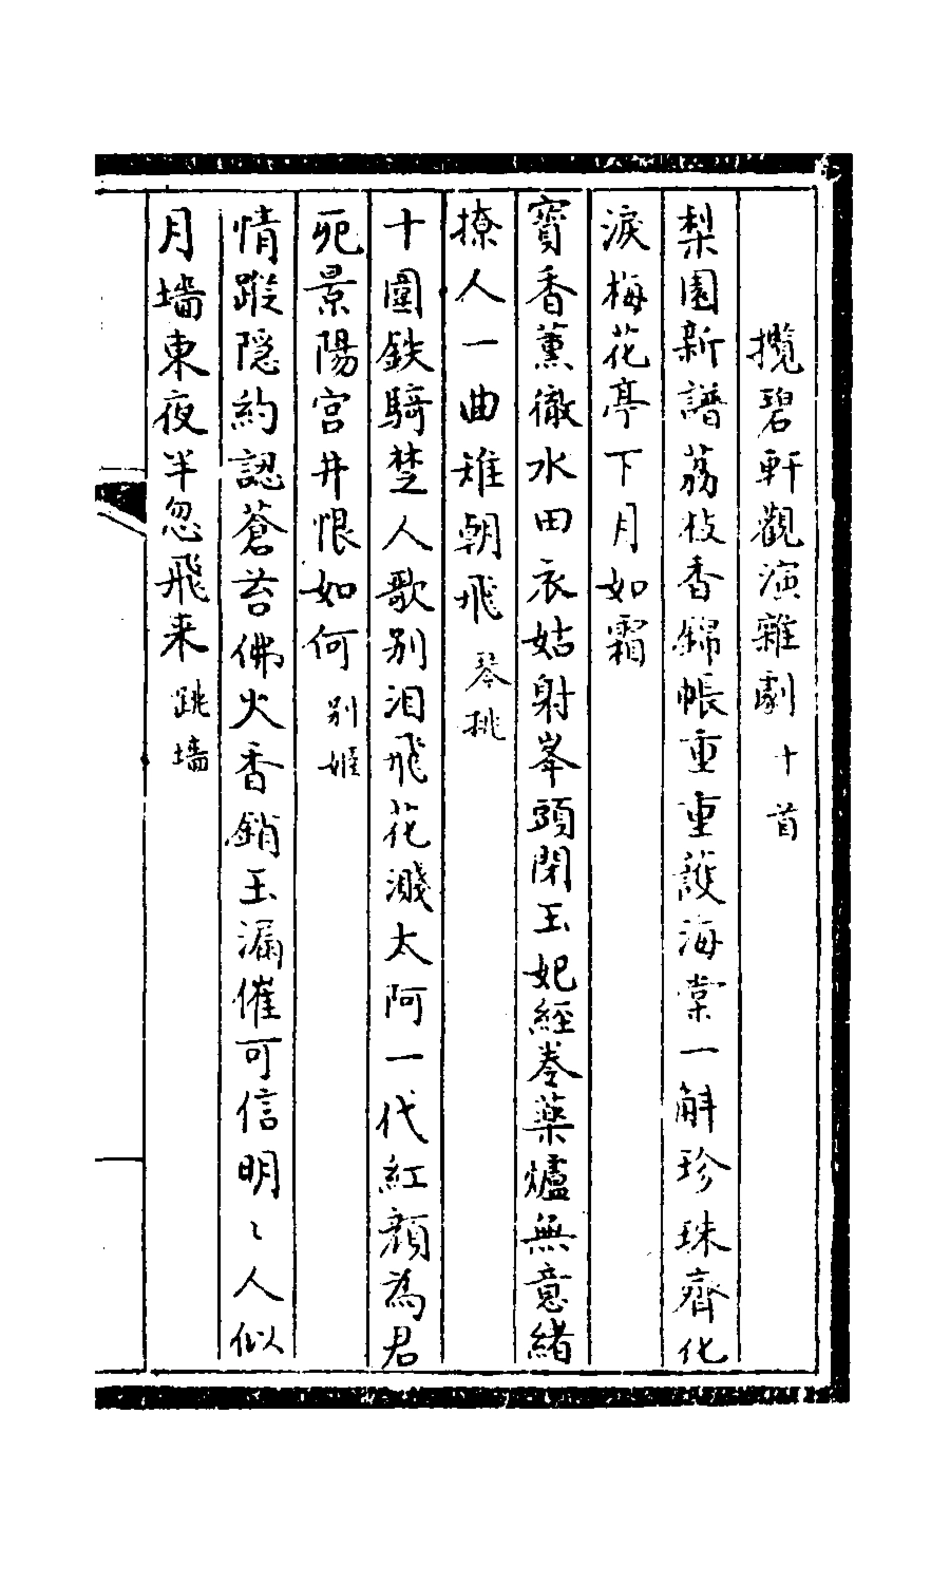 攬碧軒觀演雜劇 十首
梨園新譜荔枝香錦帳重重護海棠一斛珍珠齊化
淚梅花亭下月如霜
寶香薰徹水田衣姑射峯頭閉玉妃經卷藥爐無意緒
撩人一曲雉朝飛 琴挑
十圍鉄騎楚人歌別泪飛花濺太阿一代紅顏為君
死景陽宮井恨如何 别姬
情蹤隐約認蒼苔佛火香銷玉漏催可信明〻人似
月墻東夜半忽飛来 跳墻